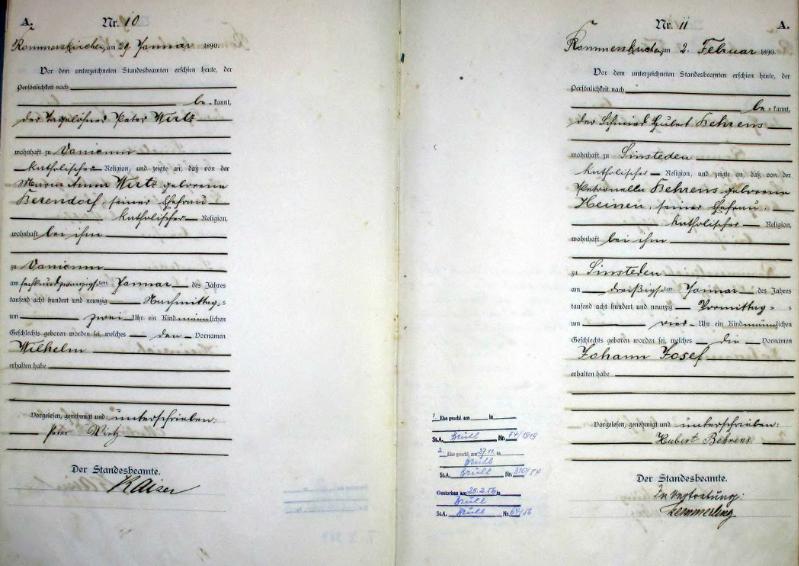 A2 Nr. 10
Rommerskirchen, am 29. Januar 1890.
Vor dem unterzeichneten Standesbeamten erschien heute, der
Persönlichkeit nach
be=kannt,
der Tagelöhner Peter Wirtz
wohnhaft zu Vanikum
katholischer Religion, und zeigte an, daß von der
Maria Anna Wirtz geborene
Berendorf, seiner Ehefrau
katholischer Religion,
wohnhaft bei ihm
zu Vanikum
am sechsundzwanzigsten Januar des Jahres
tausend acht hundert und neunzig Nachmittags
um zwei Uhr ein Kind männlichen
Geschlechts geboren worden sei, welches den Vornamen
Wilhelm
erhalten habe
Vorgelesen, genehmigt und unterschrieben:
Peter Wirtz
Der Standesbeamte.
Kaiser
Nr. 11 A.
Rommerskirchen, am 2. Februar 1890.
Vor dem unterzeichneten Standesbeamten erschien heute, der
Persönlichkeit nach
be=kannt,
der Schmied Hubert Behrens
wohnhaft zu Sinsteden
katholischer Religion, und zeigte an, daß von der
Petronella Behrens geborene
Heinen, seiner Ehefrau
katholischer Religion,
wohnhaft bei ihm
zu Sinsteden
am dreißigsten Januar des Jahres
tausend acht hundert und neunzig Vormittags
um vier Uhr ein Kind männlichen
Geschlechts geboren worden sei, welches die Vornamen
Johann Josef
erhalten habe
Vorgelesen, genehmigt und unterschrieben:
Hubert Behrens
Der Standesbeamte.
In Vertretung:
Lemmerling
1. Ehe geschl. am in
St.A. Nr. 14/1919
2. Ehe geschl. am 27.11. in
St.A. Nr.
Gestorben am 25.2.56 in
St.A. Nr. 64/56